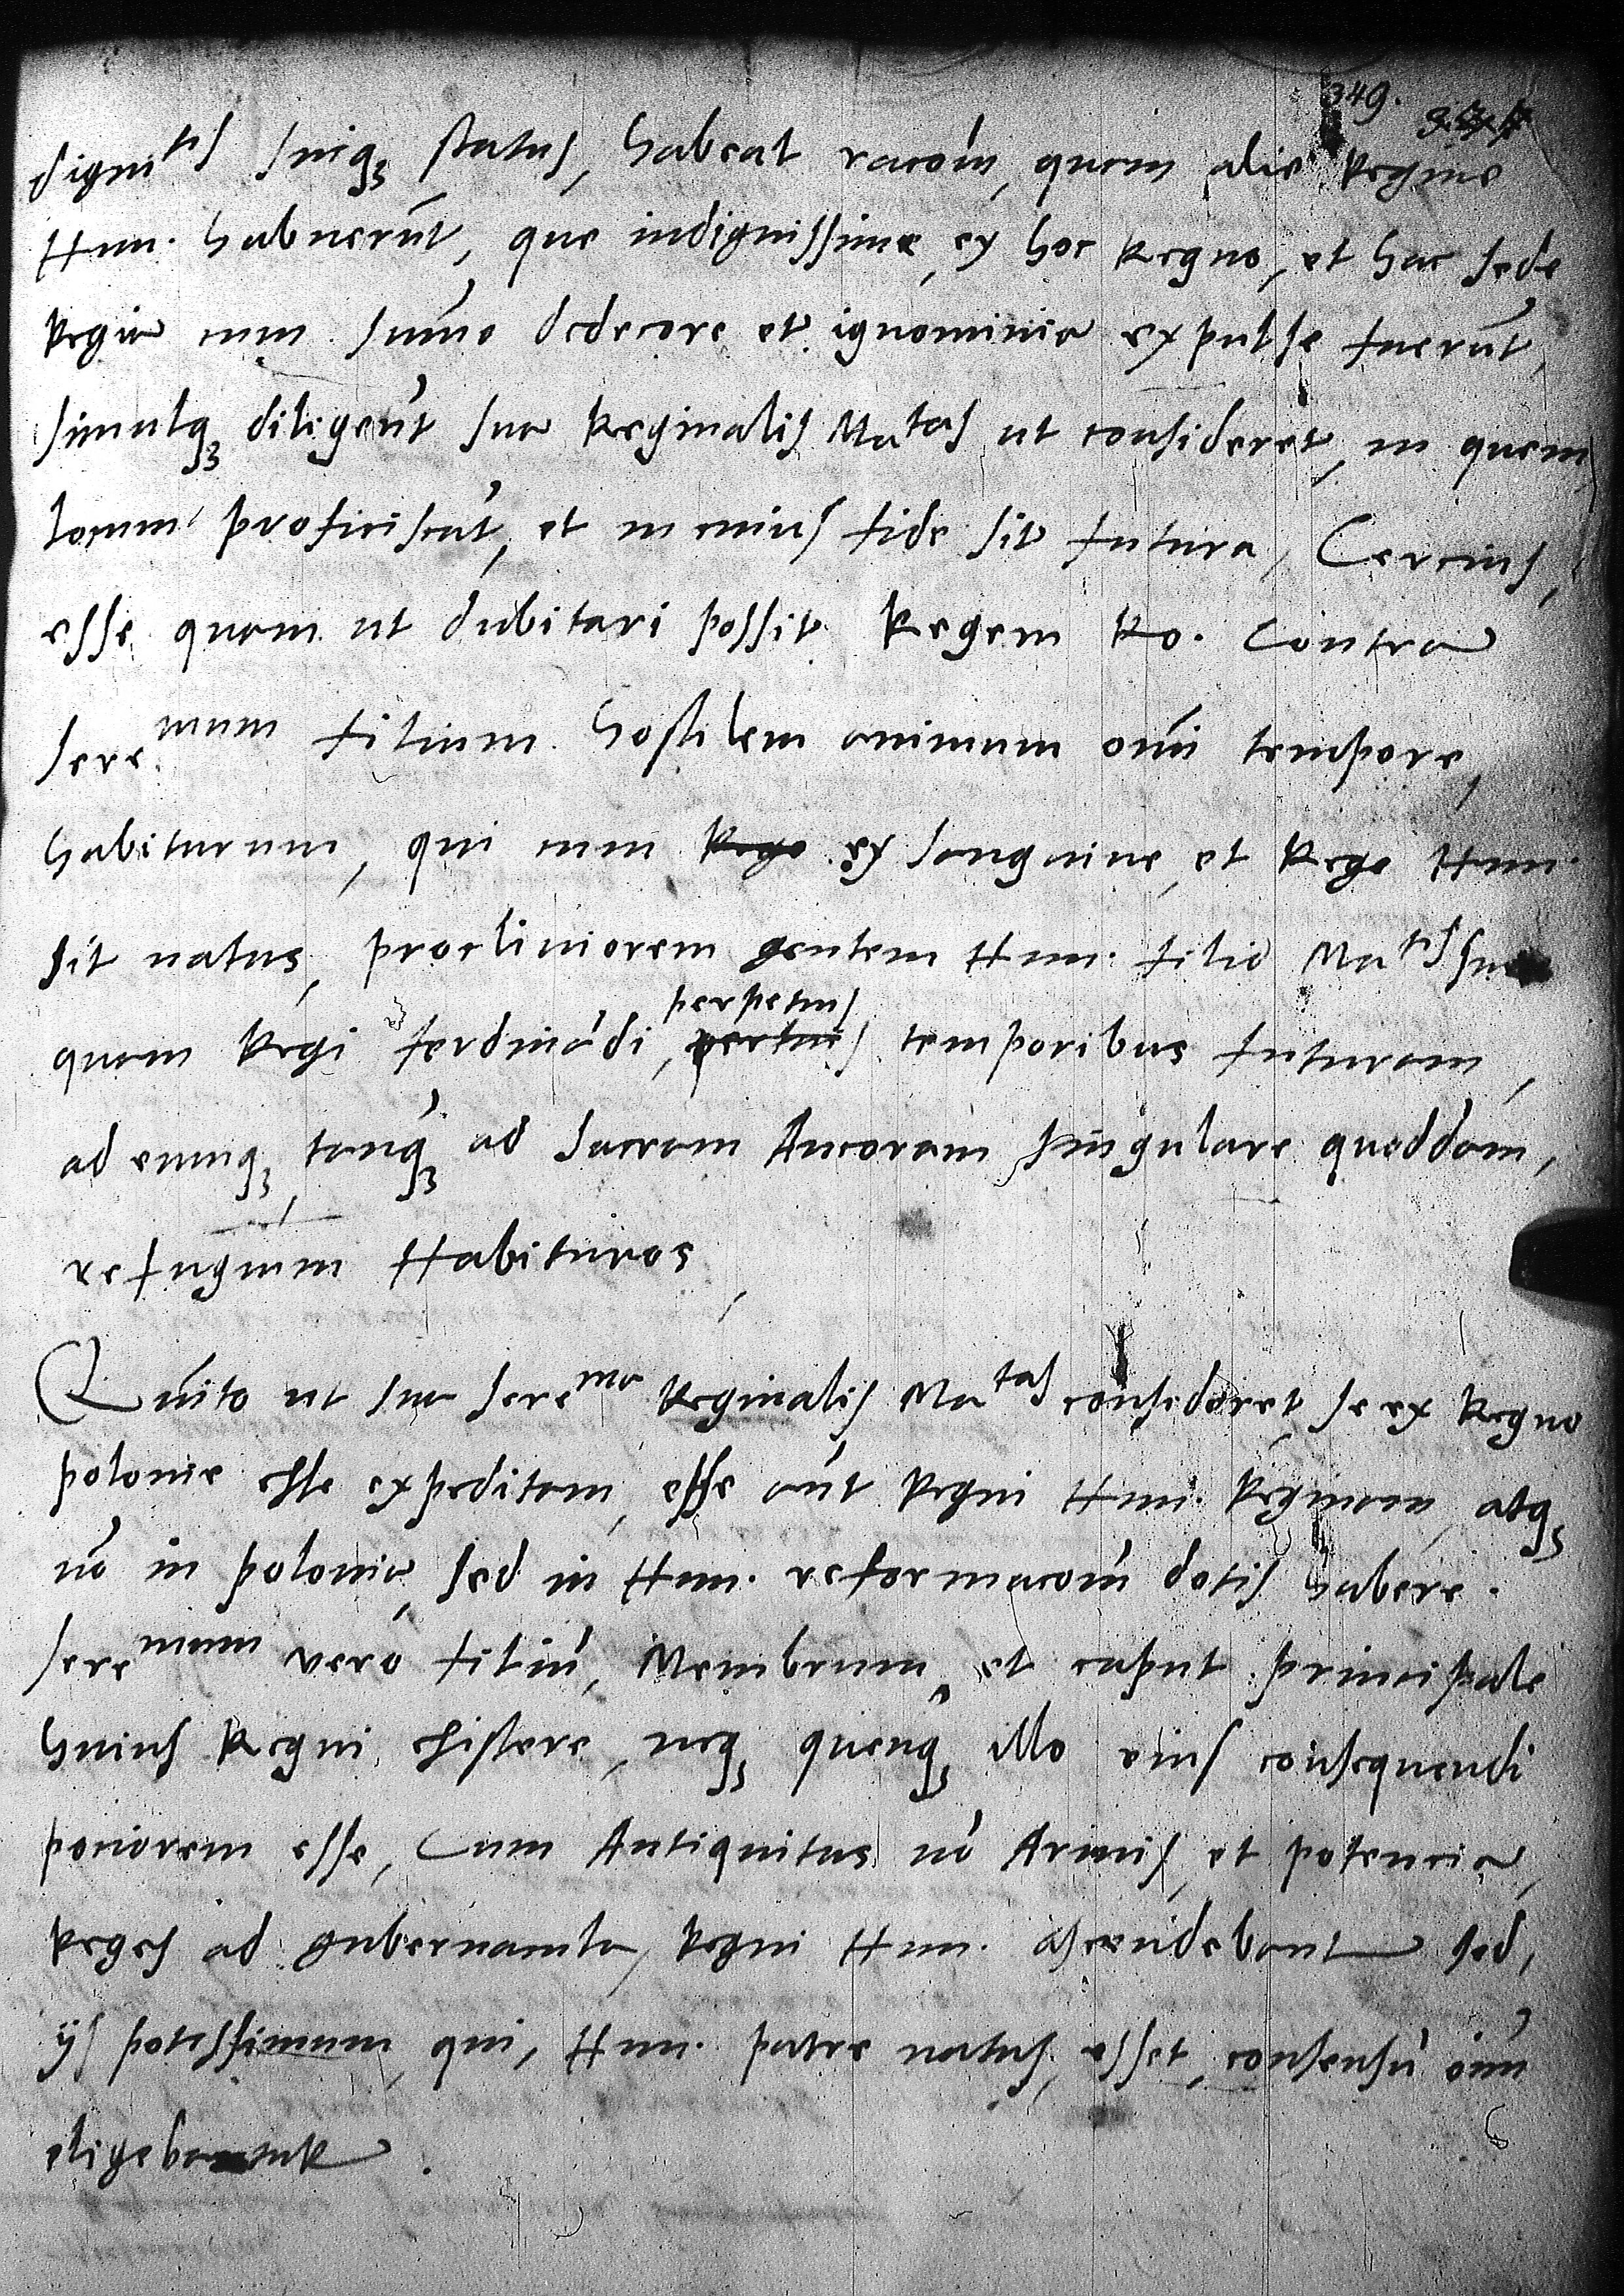 349.
dignitis suiq3 status, habeat racom, quam alie Regine
Hun. habuerūt, que indignissime, ex hoc Regno, et hac sede
Regia cum sūmo dedecore et ignominia expulse fuerūt,
simulq3 diligent sua Reginalis Matas ut consideret, in quem
locum proficiscat, et in cuius fide sit futura, Cercius,
esse quam ut dubitari possit Regem Ro. contra
Seremum filium hostilem animum omi tempore,
habiturum, qui cum Rege ex sanguine, et Rege Hun.
sit natus, procliuiorem gentem Hun. filio Matis sue
quam Regi ferdinādi, pertuis perpetuis temporibus futuram,
ad eumq3, tanq3 ad sacram Ancoram singulare quoddam,
refugium Habituros,
Quīto ut sua Serema Reginalis Matas consideret, se ex Regno
polonie esse expeditam, esse aūt Regni Hun. Reginam, atq3
nō in polonia, sed in Hun. reformacom dotis habere.
Seremum vero filiū, Membrum, et caput principale
huius Regni existere, neq3 quenq3 illo eius consequendi
pociorem esse, Cum Antiquitus nō Armis, et potencia,
Reges ad gubernacula Regni Hun. ascendebant sed,
ijs potissimum, qui, Hun. patre natus, esset, consensu oīm
eligebantur.